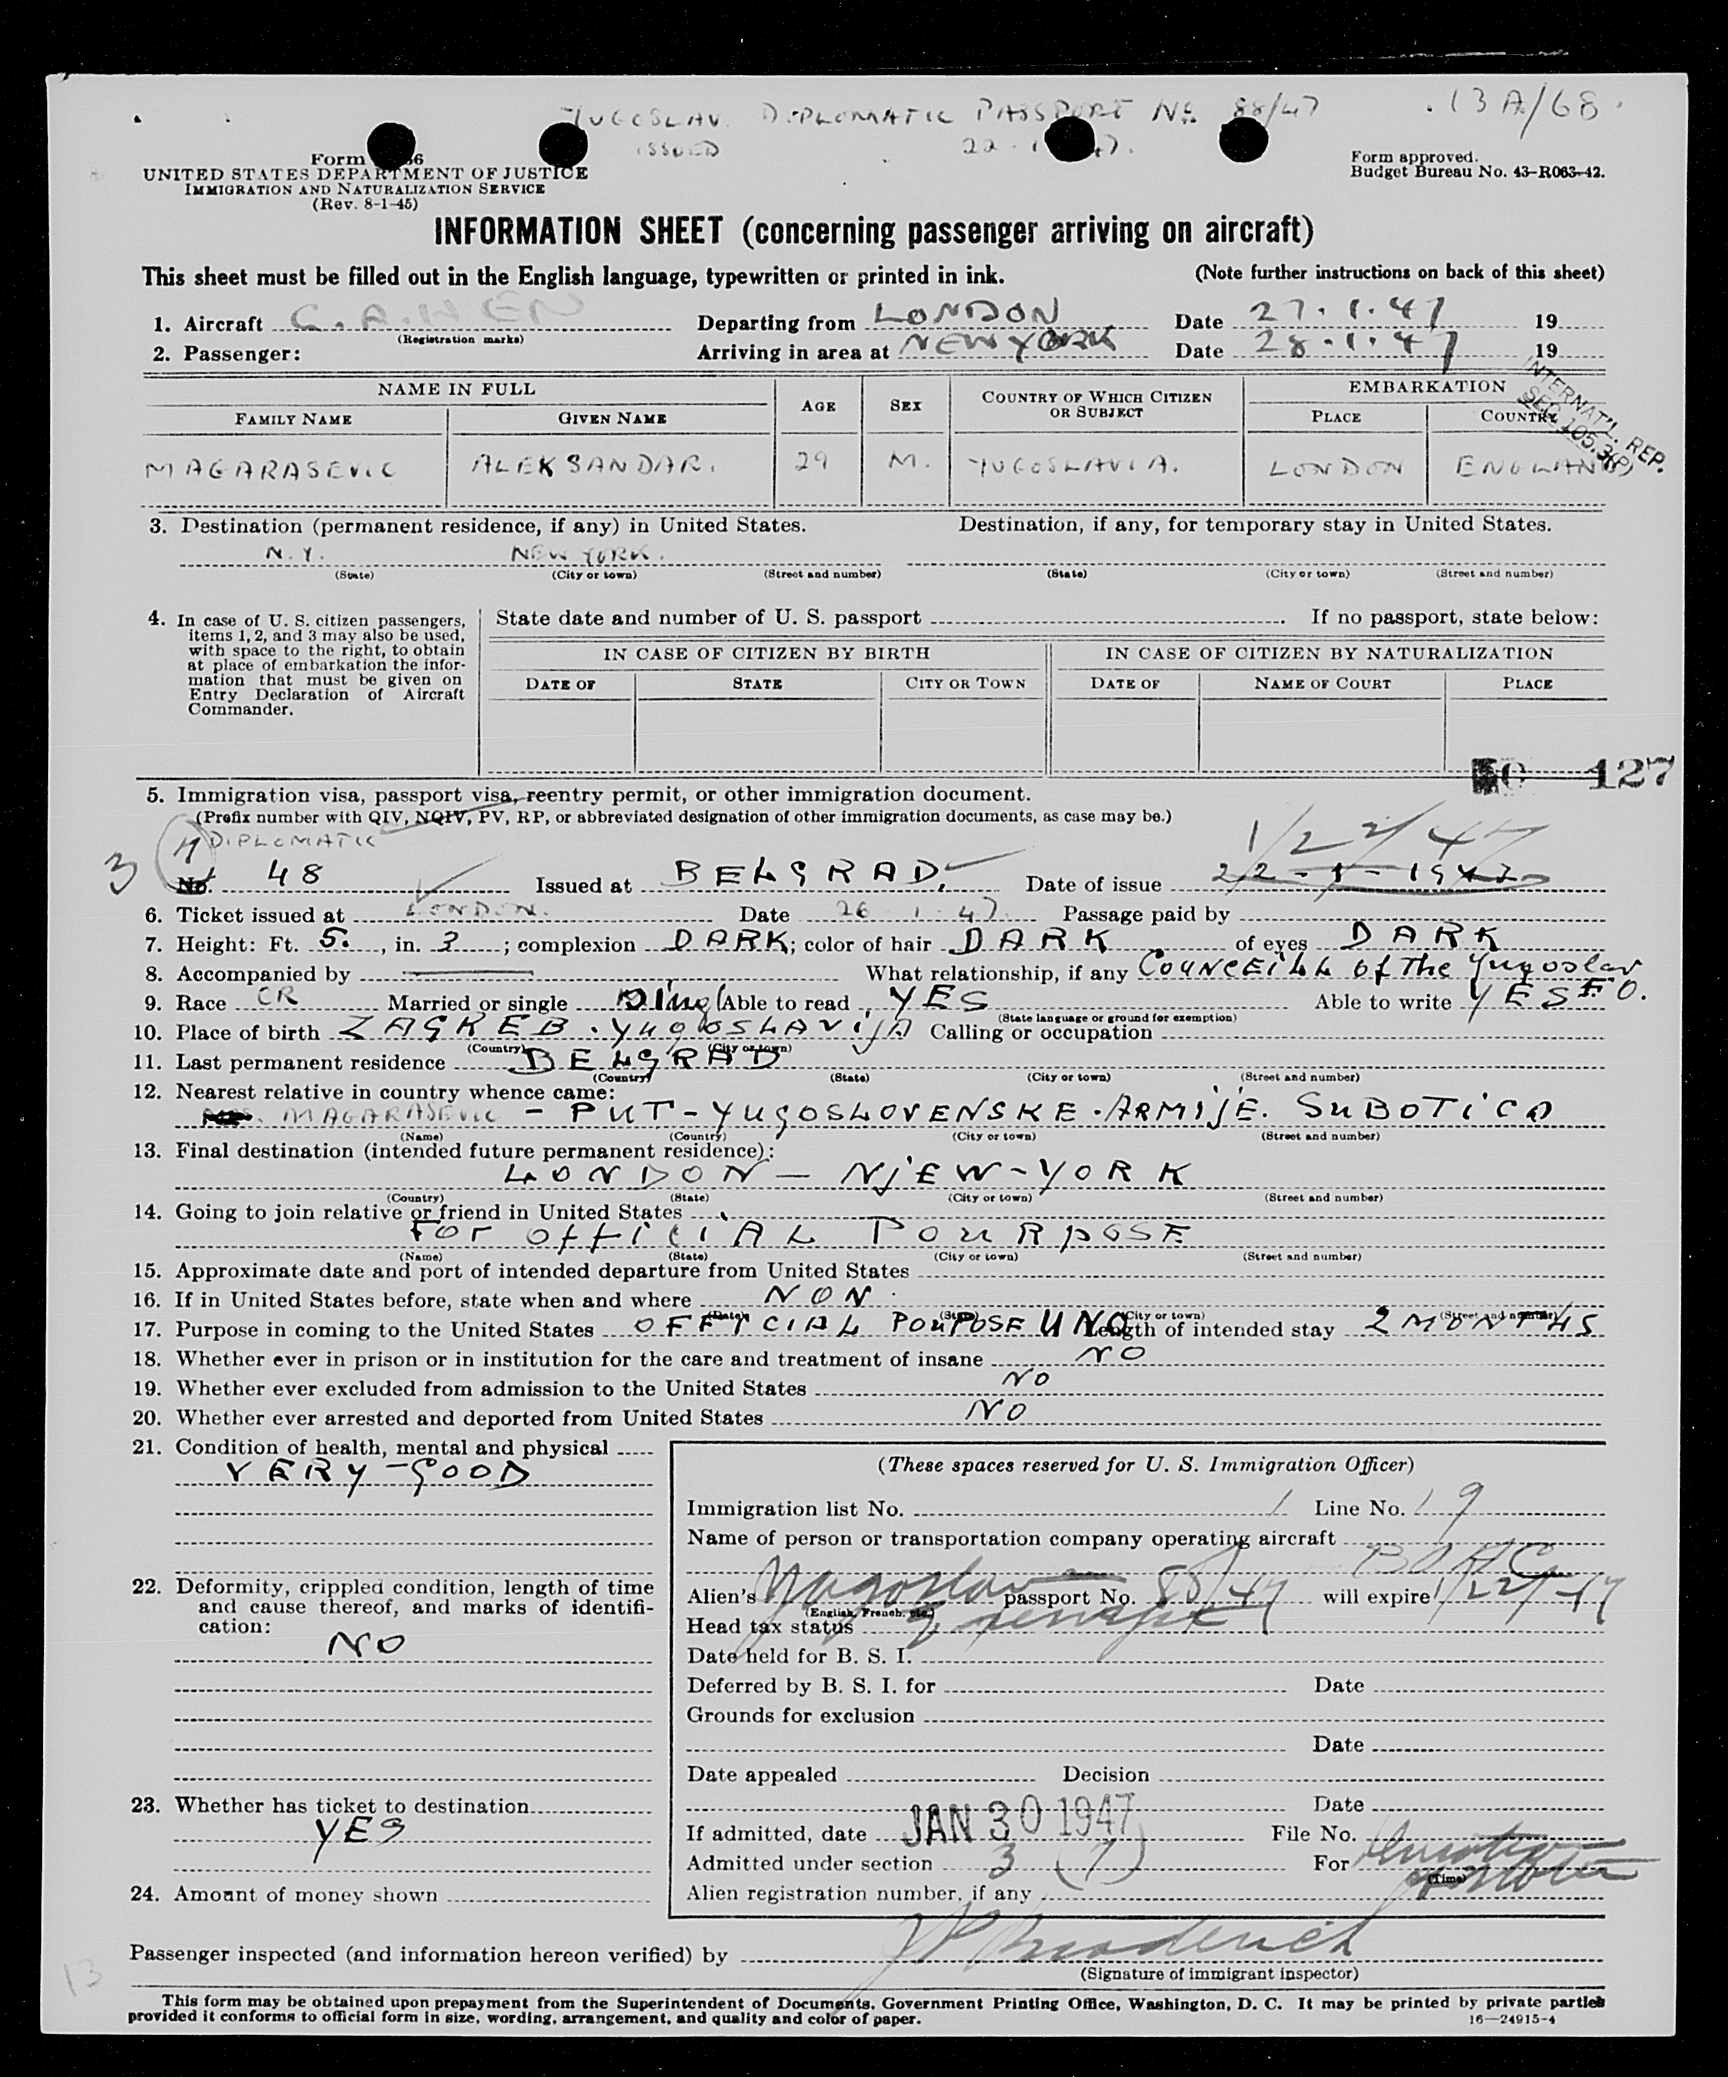 YUGOSLAV. DIPLOMATIC PASSPORT No. 88/47 13A/68
ISSUED 22.
Form 66
UNITED STATES DEPARTMENT OF JUSTICE
IMMIGRATION AND NATURALIZATION SERVICE
(Rev. 8-1-45)
Form approved.
Budget Bureau No. 43-R063-42.
INFORMATION SHEET (concerning passenger arriving on aircraft)
This sheet must be filled out in the English language, typewritten or printed in ink. (Note further instructions on back of this sheet)
1. Aircraft G.A.HEN Departing from LONDON Date 27.1.47 19
(Registration marks)
2. Passenger: Arriving in area at NEW YORK Date 28.1.47 19
INTERNAT'L. REP.
SEC. 105.3(P)
NAME IN FULL AGE SEX COUNTRY OF WHICH CITIZEN OR SUBJECT EMBARKATION
FAMILY NAME GIVEN NAME PLACE COUNTRY
MAGARASEVIC ALEKSANDAR. 29 M. YUGOSLAVIA. LONDON ENGLAND
3. Destination (permanent residence, if any) in United States. Destination, if any, for temporary stay in United States.
N.Y. NEW YORK.
(State) (City or town) (Street and number) (State) (City or town) (Street and number)
4. In case of U. S. citizen passengers,
items 1, 2, and 3 may also be used,
with space to the right, to obtain
at place of embarkation the infor-
mation that must be given on
Entry Declaration of Aircraft
Commander.
State date and number of U. S. passport . If no passport, state below:
IN CASE OF CITIZEN BY BIRTH IN CASE OF CITIZEN BY NATURALIZATION
DATE OF STATE CITY OR TOWN DATE OF NAME OF COURT PLACE
127
5. Immigration visa, passport visa, reentry permit, or other immigration document.
(Prefix number with QIV, NQIV, PV, RP, or abbreviated designation of other immigration documents, as case may be.)
DIPLOMATIC 1/22/47
3
No. 48 Issued at BELGRAD. Date of issue 22-1-1947
6. Ticket issued at LONDON. Date 26 1.47. Passage paid by
7. Height: Ft. 5. , in. 3 ; complexion DARK; color of hair DARK of eyes DARK
8. Accompanied by What relationship, if any COUNCEILL of The Yugoslav
9. Race CR Married or single Singl Able to read YES Able to write YES F.O.
(State language or ground for exemption)
10. Place of birth ZAGREB. YugOSLAViJA Calling or occupation
(Country) (City or town)
11. Last permanent residence BELGRAD
(Country) (State) (City or town) (Street and number)
12. Nearest relative in country whence came:
MAGARASEVIC - PUT-YUGOSLOVENSKE. ARMIJE. SUBOTICA
(Name) (Country) (City or town) (Street and number)
13. Final destination (intended future permanent residence):
LONDON — NjEW-YORK
(Country) (State) (City or town) (Street and number)
14. Going to join relative or friend in United States
For OffiCiAL POURpOSE
(Name) (State) (City or town) (Street and number)
15. Approximate date and port of intended departure from United States
16. If in United States before, state when and where NON
(Date) (State) (City or town) (Street and number)
17. Purpose in coming to the United States OFFICIAL POUPOSE UNO Length of intended stay 2 MONTHS
18. Whether ever in prison or in institution for the care and treatment of insane NO
19. Whether ever excluded from admission to the United States NO
20. Whether ever arrested and deported from United States NO
21. Condition of health, mental and physical
VERY-GOOD
22. Deformity, crippled condition, length of time
and cause thereof, and marks of identifi-
cation:
NO
23. Whether has ticket to destination
YES
24. Amount of money shown
(These spaces reserved for U. S. Immigration Officer)
Immigration list No. 1 Line No. 19
Name of person or transportation company operating aircraft
Alien's Yugoslav passport No. 88/47 will expire 1/22/47
(English, French, etc.)
Head tax status
Date held for B. S. I.
Deferred by B. S. I. for Date
Grounds for exclusion
Date
Date appealed Decision
Date
If admitted, date JAN 30 1947 File No.
Admitted under section 3 (7) For
(Time)
Alien registration number, if any
Passenger inspected (and information hereon verified) by
(Signature of immigrant inspector)
13
This form may be obtained upon prepayment from the Superintendent of Documents, Government Printing Office, Washington, D. C. It may be printed by private parties
provided it conforms to official form in size, wording, arrangement, and quality and color of paper. 16—24915-4